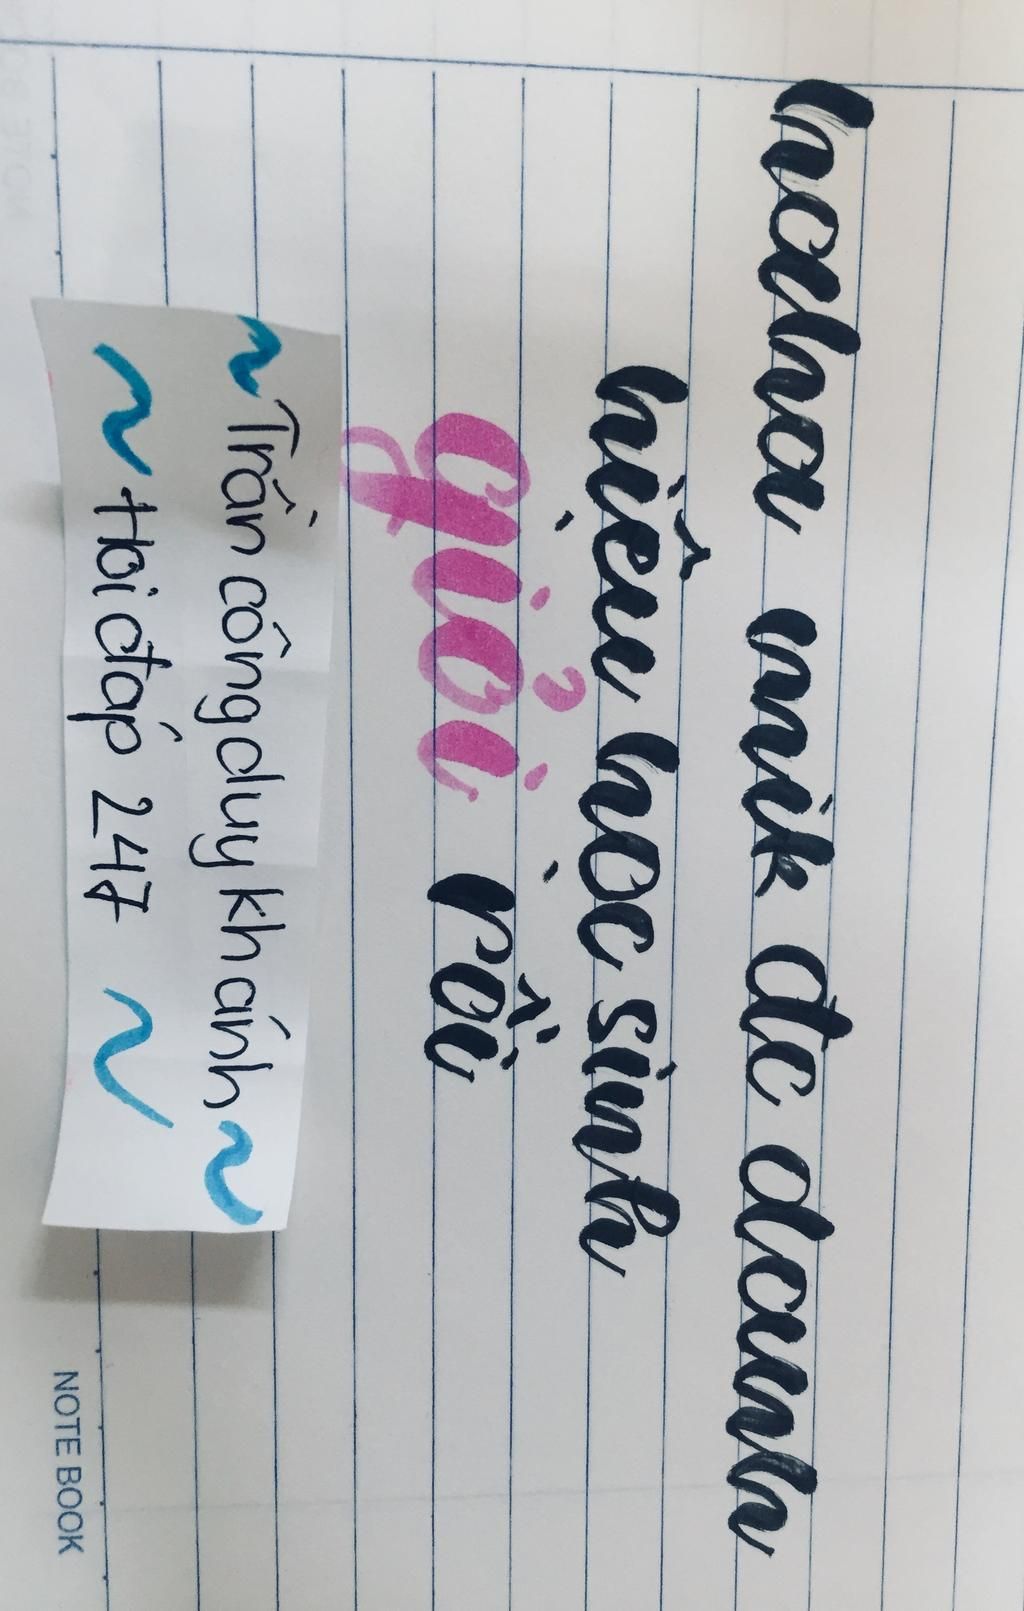 hcahca mik đc danh
hiệu học sinh
giỏi rồi
~Trần công duy khánh~
~ Hoi đáp 247 ~
NOTE BOOK